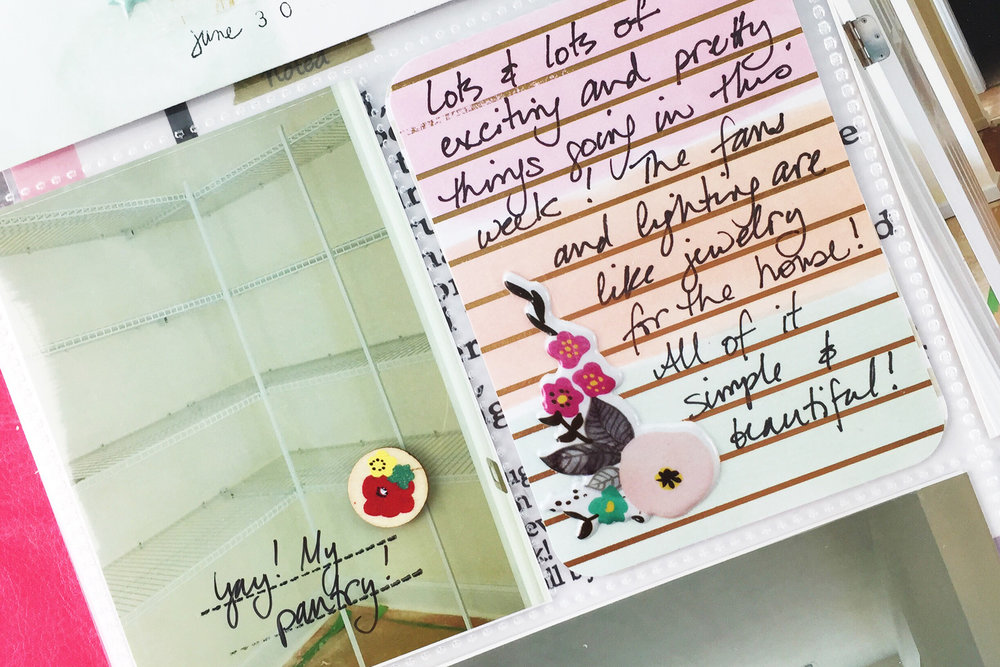 june 30
noted
Lots & lots of
exciting and pretty
things going in this
week! The fans
and lighting are
like jewelry
for the house!
All of it
simple &
beautiful!
yay! My
pantry!